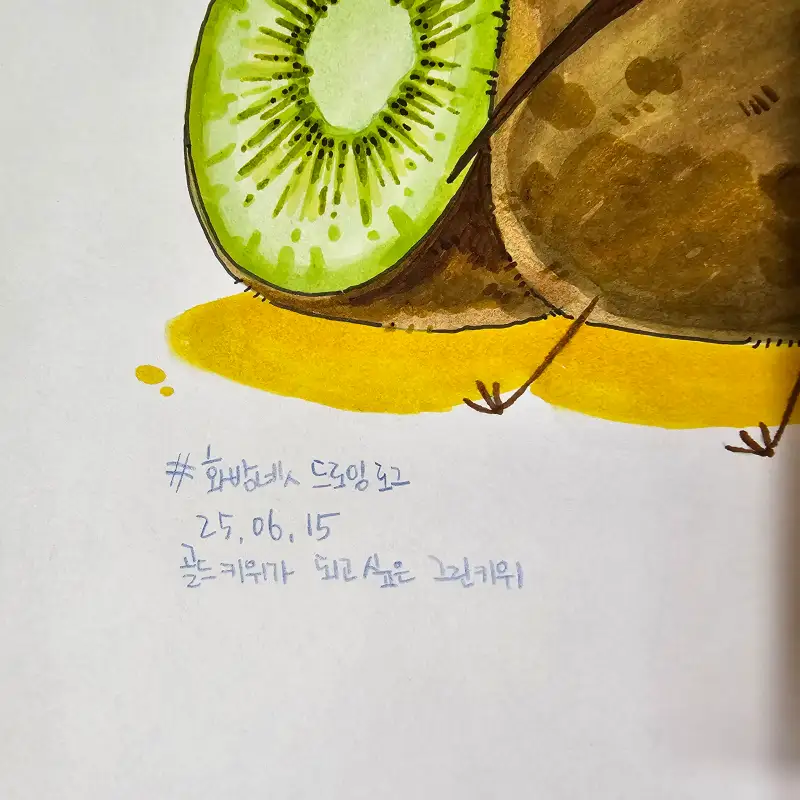 #화밤네스 드로잉로그
25.06.15
골드키위가 되고싶은 그린키위